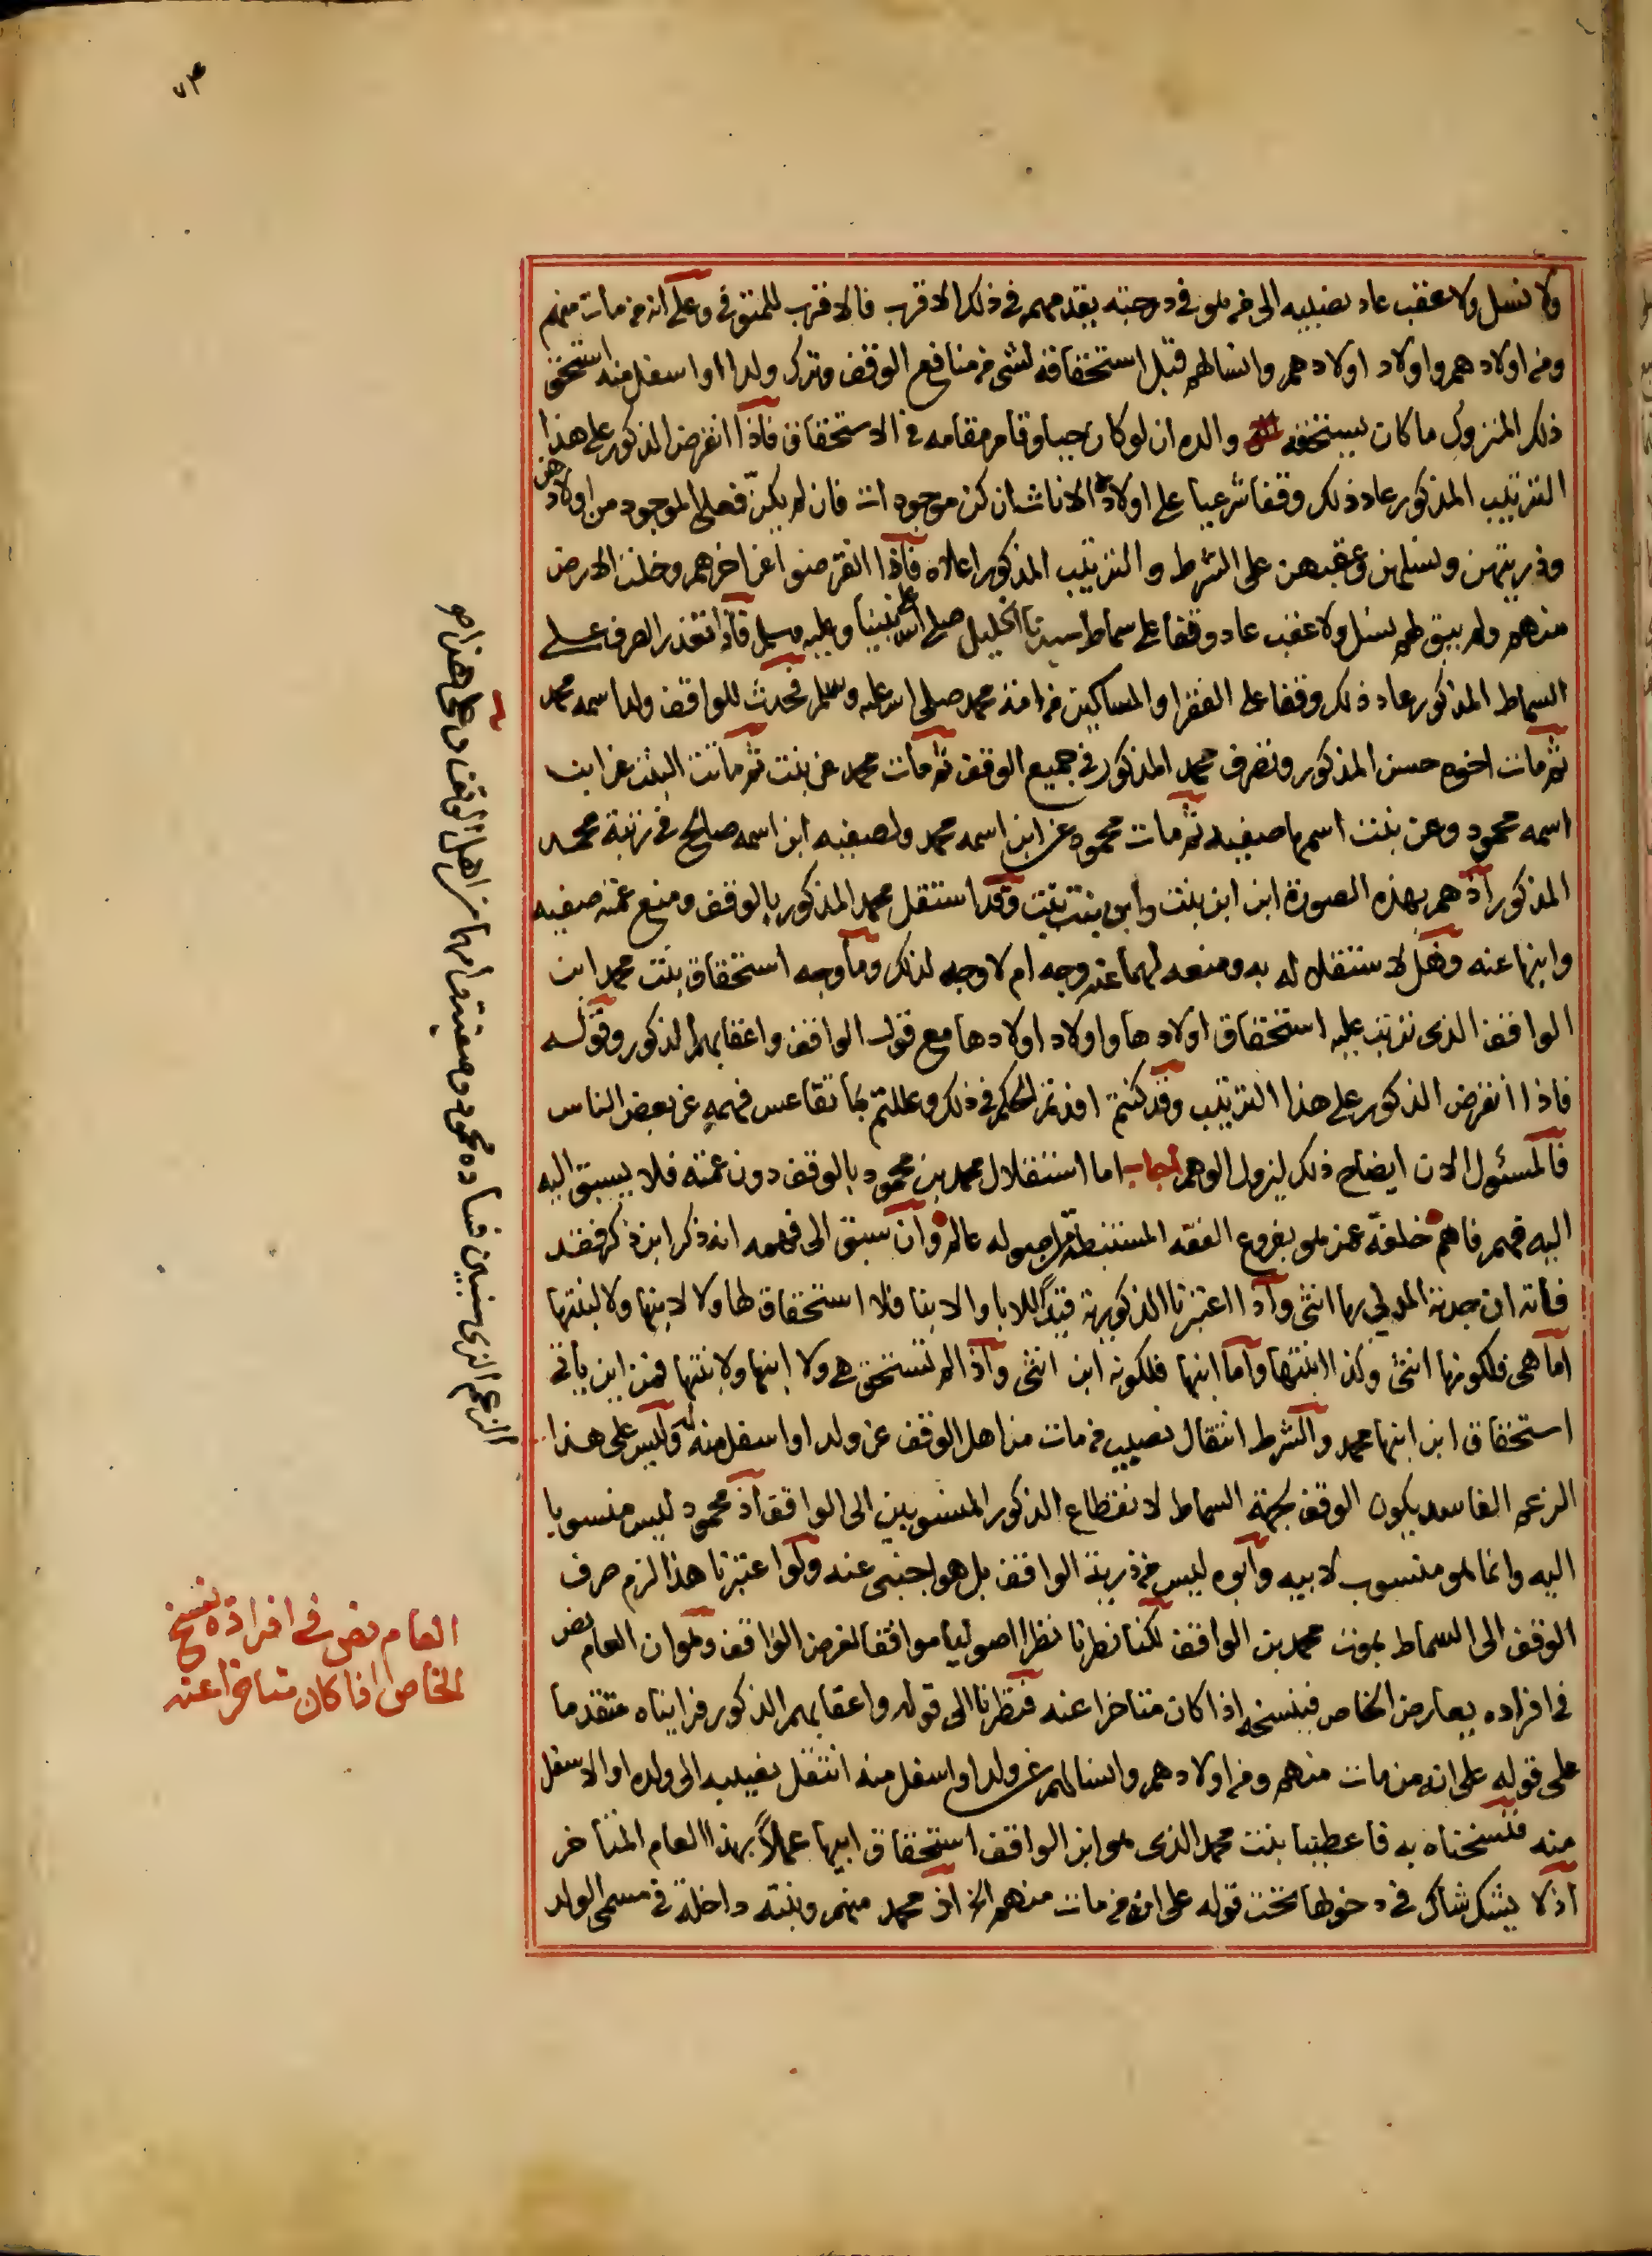 ولا نسل ولا عقب عاد نصيبه الى من هو في درجته يقدم منهم في ذلك الاقرب فالاقرب للمتوفى وعلى انه من مات منهم
ومن اولادهم واولاد اولادهم وانسالهم قبل استحقاقه لشى من منافع الوقف وترك ولدا او اسفل منه استحق
ذلك المتروك ما كان يستحقه والده ان لو كان حيا وقام مقامه في الاستحقاق فاذا انقرض الذكور على هذا
الترتيب المذكور عاد ذلك وقفا شرعيا على اولاده الاناث ان كن موجودات فان لم يكنّ فعلى الموجود من اولادهن
وذريتهن ونسلهن وعقبهن على الشرط والترتيب المذكور اعلاه فاذا انقرضوا عن اخرهم وخلت الارض
منهم ولم يبق لهم نسل ولا عقب عاد وقفا على سماط سيدنا الخليل صلى الله على نبينا وعليه وسلم فاذا تعذر الصرف على
السماط المذكور عاد ذلك وقفا على الفقرا والمساكين من امة محمد صلى الله عليه وسلم فحدث للواقف ولد اسمه محمد
ثم مات اخوه حسن المذكور وتصرف محمد المذكور في جميع الوقف ثم مات محمد عن بنت ثم ماتت البنت عن ابن
اسمه محمود وعن بنت اسمها صفيه ثم مات محمود عن ابن اسمه محمد ولصفيه ابن اسمه صالح في رتبة محمد
المذكور اذ هم بهذه الصورة ابن ابن بنت وابن بنت بنت وقد استقل محمد المذكور بالوقف ومنع عمته صفيه
وابنها عنه وهل لاستقلاله به ومنعه لهما عنه وجه ام لا وجه لذلك وما وجه استحقاق بنت محمد ابن
الواقف الذى ترتب عليه استحقاق اولادها واولاد اولادها مع قول الواقف واعقابهم الذكور وقوله
فاذا انقرض الذكور على هذا الترتيب وقد كنتم افدتم الحكم في ذلك وعللتم بما تقاعس فهمه عن بعض الناس
فالمسئول الان ايضاح ذلك ليزول الوهم اجاب اما استقلال محمد بن محمود بالوقف دون عمته فلا يسبق اليه
اليه فهم فاهم خلفة عمن هو بفروع الفقه المستنبطة من اصوله عالم وان سبق الى فهمه انه ذكر ابن ذكر فقد
فاته ان جدته المدلي بها انثى واذا اعتبرنا الذكورية قيداً للابا والابنا فلا استحقاق لها ولا لابنها ولا لبنتها
اما هى فلكونها انثى وكذا ابنتها واما ابنها فلكونه ابن انثى واذا لم تستحق هى ولا ابنها ولا بنتها فمن اين ياتى
استحقاق ابن ابنها محمد والشرط انتقال نصيب من مات من اهل الوقف عن ولد او اسفل منه له وليس على هذا
الزعم الفاسد يكون الوقف لجهة السماط لانقطاع الذكور المنسوبين الى الواقف اذ محمود ليس منسوبا
اليه وانما هو منسوب لابيه وابوه ليس من ذرية الواقف بل هو اجنبى عنه ولو اعتبرنا هذا لزم صرف
الوقف الى السماط بموت محمد بن الواقف لكنا نظرنا نظرا اصوليا موافقا لغرض الواقف وهو ان العام نص
في افراده يعارض الخاص فينسخه اذا كان متاخرا عنه فنظرنا الى قوله واعقابهم الذكور فرايناه متقدما
على قوله على انه من مات منهم ومن اولادهم وانسالهم عن ولد او اسفل منه انتقل نصيبه الى ولده او الاسفل
منه فنسخناه به فاعطينا بنت محمد الذى هو ابن الواقف استحقاق ابيها عملاً بهذا العام المتاخر
اذ لا يشك شاك في دخولها تحت قوله على انه من مات منهم الخ اذ محمد منهم وبنته داخلة في مسمى الولد
الزعم الذى سنبين فساده محمود وصفية وامهما من اهل الوقف وعلى هذا هو
العام نص في افراده ينسخ
الخاص اذا كان متاخرا عنه